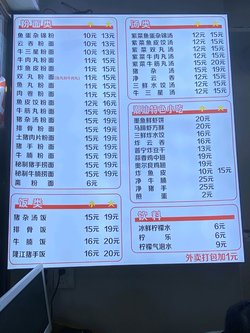 粉面类 小 大
鱼蛋杂锦粉 10元 13元
云吞粉面 10元 13元
牛三星粉面 10元 13元
牛肉丸粉面 11元 15元
双鱼皮粉面 11元 15元
双丸粉面 11元 15元
丸粉面 11元 15元
卷粉面 11元 15元
鱼皮饺粉面 12元 16元
牛筋丸粉面 15元 19元
猪杂粉面 15元 19元
排骨粉面 15元 19元
土猪肉片粉面 15元 19元
猪手粉面 15元 19元
牛腩粉面 16元 20元
秘制猪手捞面 15元 19元
秘制牛腩捞面 16元 20元
斋粉面 6元
饭类 小 大
猪杂汤饭 15元 19元
排骨饭 15元 19元
牛腩饭 16元 20元
隆江猪手饭 16元 20元
汤类 小 大
紫菜鱼蛋杂锦汤 12元 15元
紫菜鱼皮饺汤 12元 15元
紫菜双丸汤 12元 15元
紫菜牛肉丸汤 12元 15元
紫菜牛筋丸汤 15元 20元
猪杂汤 15元
净云吞 12元 15元
三鲜水饺汤 12元 15元
潮汕特色小吃 小 大
三鲜水饺
炸云吞
普宁炸豆干
蒜香鸡中翅
炸鱼皮 10元 15元
净牛腩 25元
净猪手 25元
煎蛋 2元
饮料
冰鲜柠檬水 6元
柠乐 6元
柠檬气泡水 9元
外卖打包加1元